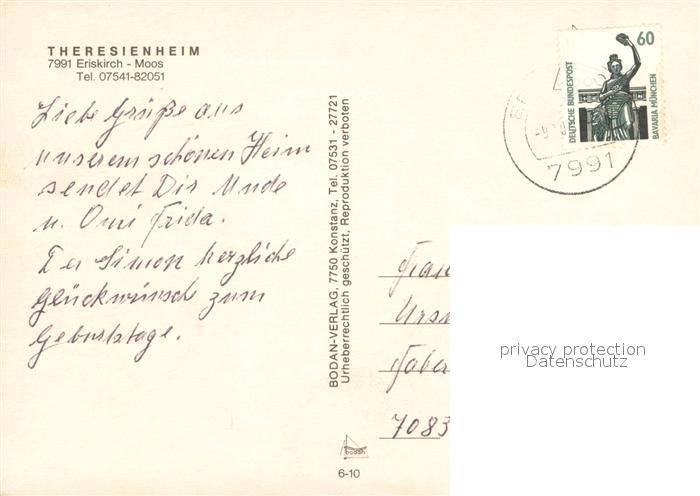 THERESIENHEIM
7991 Eriskirch - Moos
Tel. 07541-82051
Liebe Grüße aus
unserem schönen Heim
sendet Dir Unde
u. Omi Frida.
Der Simon herzliche
Glückwünsche zum
Geburtstage.
BODAN-VERLAG, 7750 Konstanz, Tel. 07531 - 27721
Urheberrechtlich geschützt, Reproduktion verboten
bodan
6-10
60
DEUTSCHE BUNDESPOST
BAVARIA MÜNCHEN
7991
Frau
Ursu
Faber
7083
privacy protection
Datenschutz